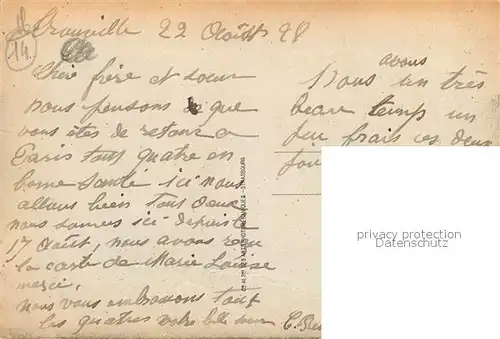 14
Trouville 22 Août 28
Chère frère et soeur
nous pensons que
vous êtes de retour a
Paris tout quatre en
bonne santé ici nous
allons bien tout deux
nous sommes ici depuis le
17 Août, nous avons reçu
la carte de Marie Louise
merci.
Nous vous embrassons tout
les quatres votre belle soeur
avons
Nous un très
beau temps un
peu frais ces deux
privacy protection